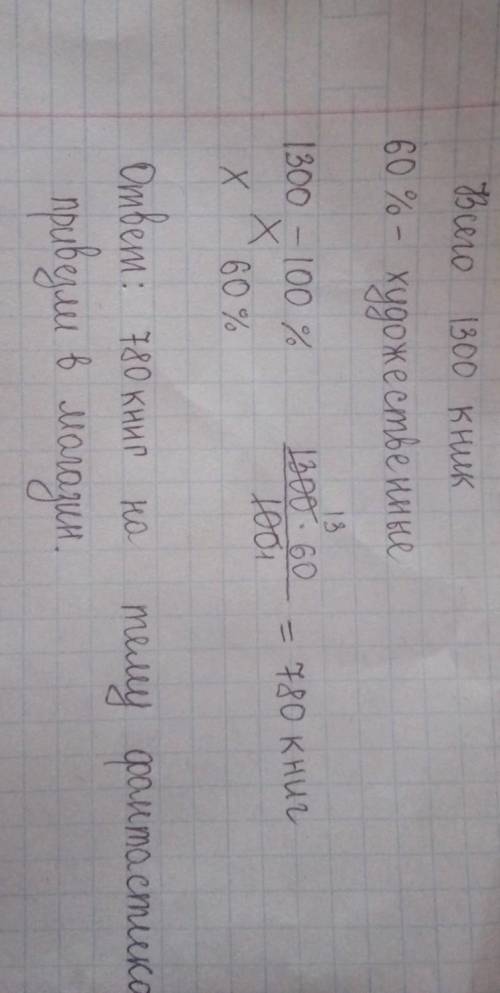 Всего 1300 кник
60 % - художественные
1300 - 100 %
X
х 60 %
13
1300 · 60
100 1
= 780 книг
Ответ: 780 книг на тему фантастика
привезли в магазин.